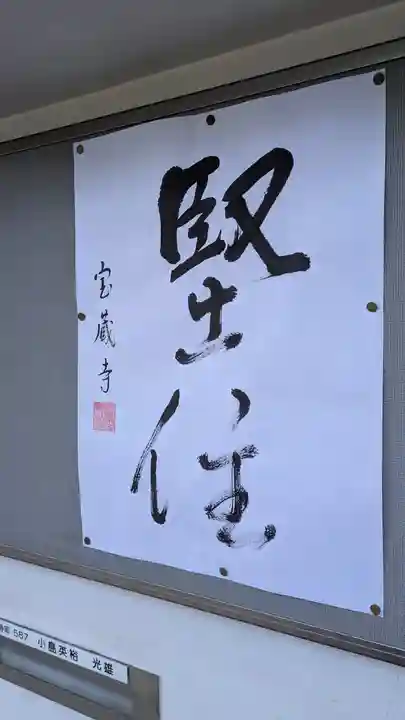 堅住
宝蔵寺
567 小島英裕 光雄